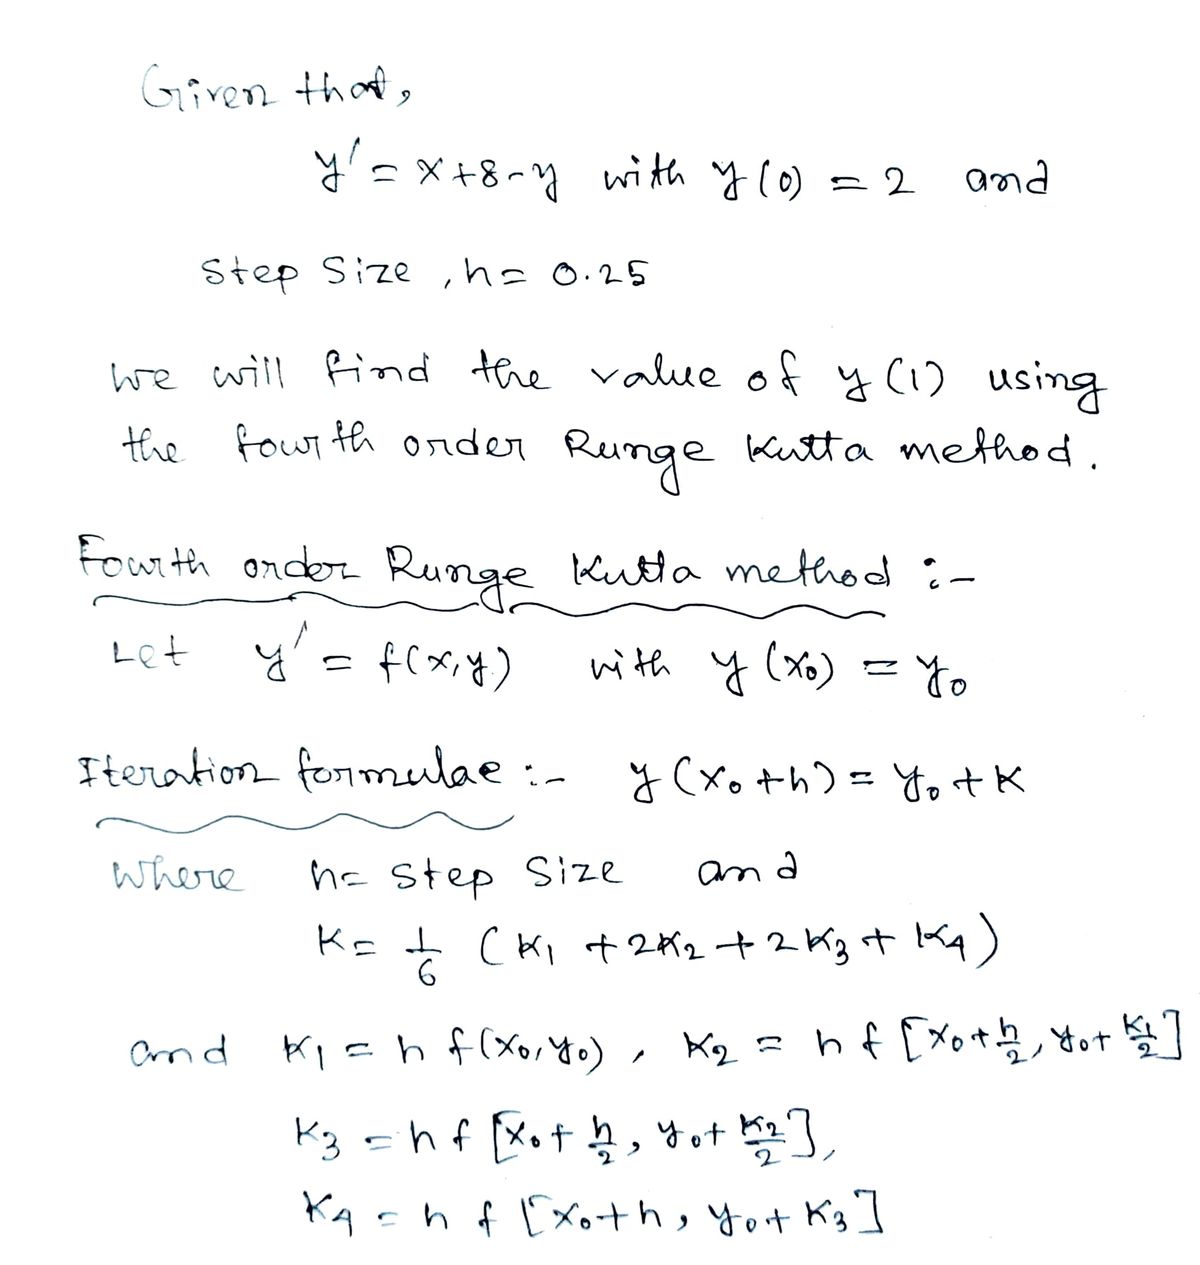 Given that,
y' = x+8-y with y(0) = 2 and
Step Size, h = 0.25
we will find the value of y(1) using
the fourth order Runge Kutta method.
Fourth order Runge Kutta method :-
Let y' = f(x,y) with y(x₀) = y₀
Iteration formulae :- y(x₀+h) = y₀+K
where h = step size and
K = 1/6 (K₁ + 2K₂ + 2K₃ + K₄)
and K₁ = h f(x₀,y₀), K₂ = h f [x₀+h/2, y₀+K₁/2]
K₃ = h f [x₀+h/2, y₀+K₂/2],
K₄ = h f [x₀+h, y₀+K₃]